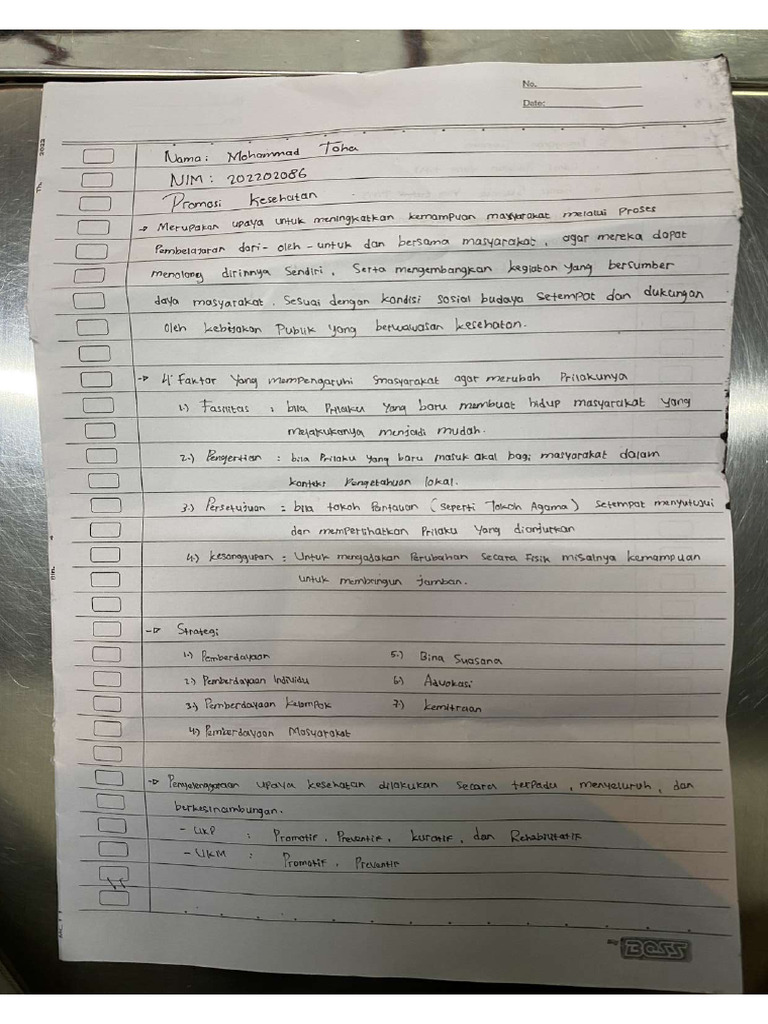 No.
Date:
Nama: Mohammad Toha
NIM: 202202086
Promosi Kesehatan
→ Merupakan upaya untuk meningkatkan kemampuan masyarakat melalui Proses
Pembelajaran dari-oleh-untuk dan bersama masyarakat, agar mereka dapat
menolong dirinnya Sendiri, Serta mengembangkan kegiatan yang bersumber
daya masyarakat. Sesuai dengan kondisi sosial budaya setempat dan dukungan
oleh kebijakan Publik yang berwawasan kesehatan.
→ 4 Faktor Yang mempengaruhi masyarakat agar merubah Prilakunya
1.) Fasilitas : bila Prilaku Yang baru membuat hidup masyarakat yang
melakukanya menjadi mudah.
2.) Pengertian : bila Prilaku yang baru masuk akal bagi masyarakat dalam
konteks Pengetahuan lokal.
3.) Persetujuan : bila tokoh Pantauan (seperti Tokoh Agama) setempat menyutujui
dan memperlihatkan Prilaku Yang dianjurkan
4.) kesanggupan : Untuk mengadakan Perubahan Secara Fisik misalnya kemampuan
untuk membangun jamban.
→ Strategi
1.) Pemberdayaan 5.) Bina Suasana
2.) Pemberdayaan Individu 6.) Advokasi
3.) Pemberdayaan Kelompok 7.) kemitraan
4.) Pemberdayaan Masyarakat
→ Penyelenggaraan upaya kesehatan dilakukan secara terpadu, menyeluruh, dan
berkesinambungan.
- UKP : Promotif, Preventif, kuratif, dan Rehabilitatif
- UKM : Promotif, Preventif
BOSS